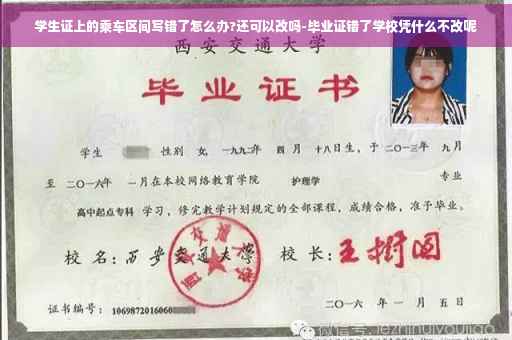 学生证上的乘车区间写错了怎么办?还可以改吗-毕业证错了学校凭什么不改呢
西安交通大学
毕业证书
学生 性别 女, 一九九二年 四月 十八日生, 于 二〇一三年 九月
至 二〇一六年 一月在本校网络教育学院 护理学 专业
高中起点专科 学习, 修完教学计划规定的全部课程, 成绩合格, 准予毕业。
校名: 西安交通大学 校长: 王树国
西安交通大学
证书编号: 1069872016060 二〇一六年 一月 五日
微信号: jezhihuiyoujiao